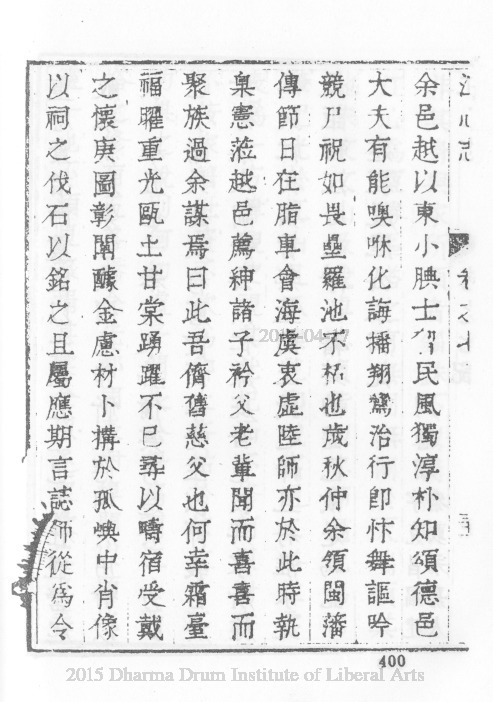 江心志 卷之十 記
余邑越以東小腆士習民風獨淳朴知頌德邑
大夫有能噢咻化誨播翔鶩治行即忭舞謳吟
競尸祝如畏壘羅池不柘也歲秋仲余領閩藩
傳節日在脂車會海虞衷虛陸師亦於此時執
臬憲蒞越邑薦紳諸子衿父老輩聞而喜喜而
聚族過余謀焉曰此吾儕舊慈父也何幸霜臺
福曜重光甌土甘棠踴躍不已尋以疇宿受戴
之懷庚圖彰闡醵金慮材卜搆於孤嶼中肖像
以祠之伐石以銘之且屬應期言誌師從為令
400
2015 Dharma Drum Institute of Liberal Arts